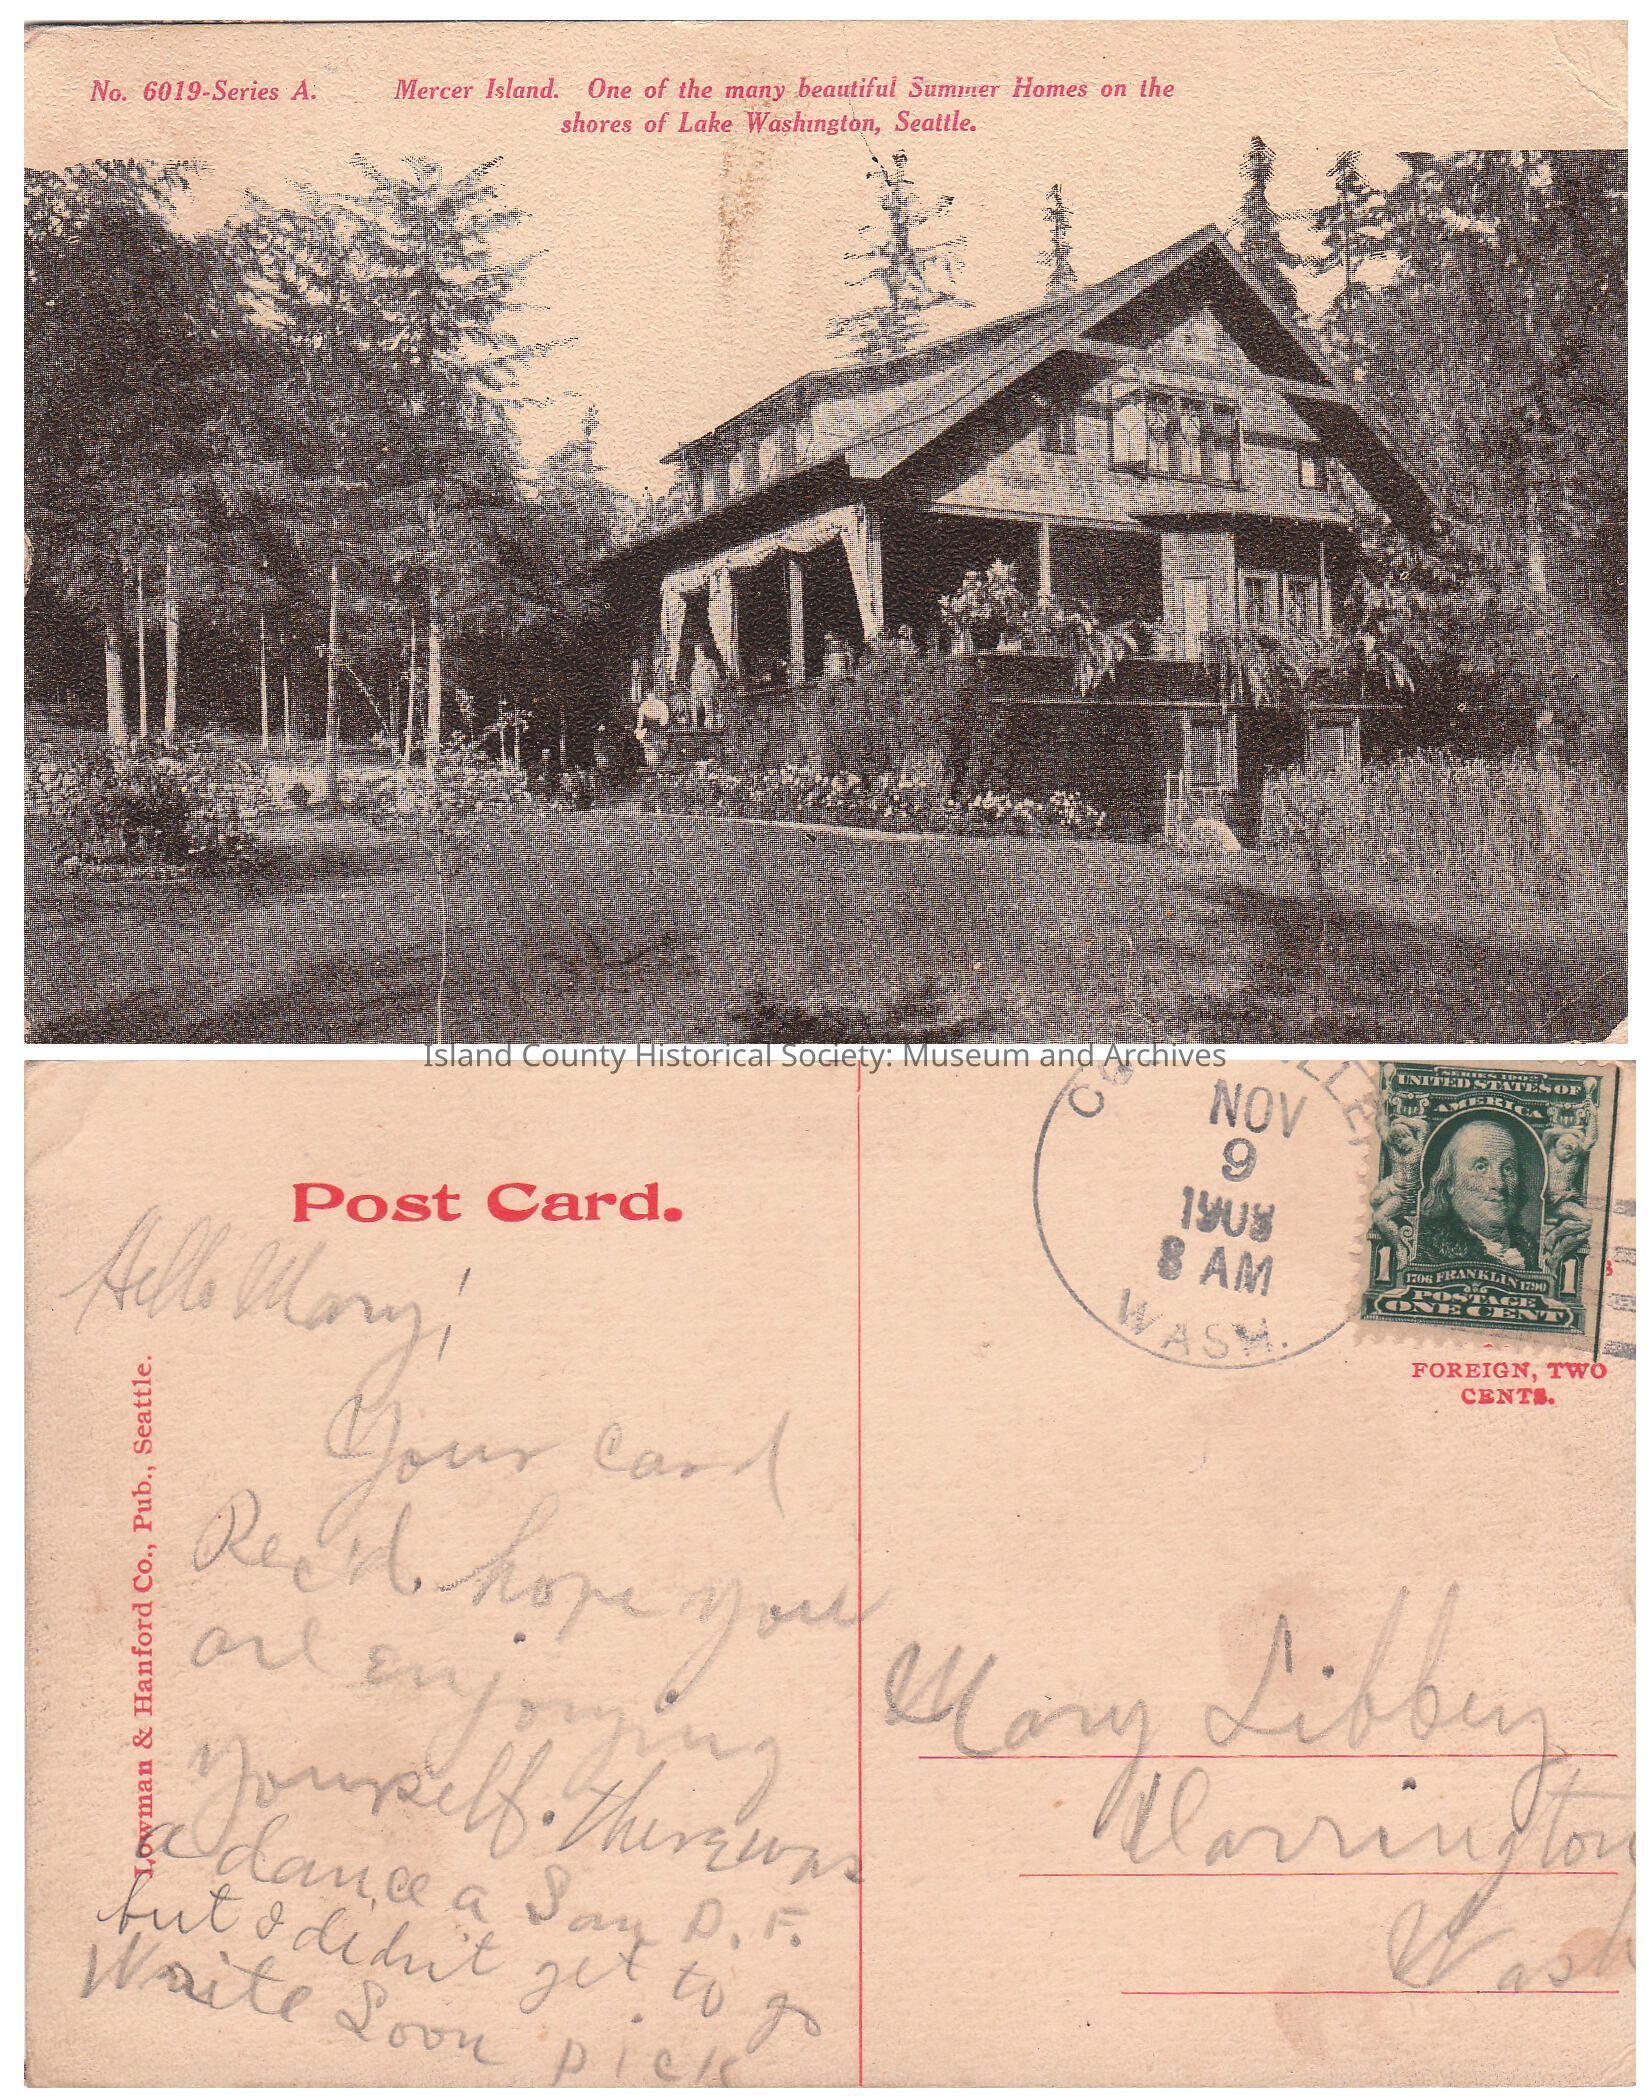 No. 6019-Series A. Mercer Island. One of the many beautiful Summer Homes on the
shores of Lake Washington, Seattle.
Island County Historical Society: Museum and Archives
Post Card.
NOV
9
8 AM
WASH.
SERIES 1902
UNITED STATES OF
AMERICA
1 1
1706 FRANKLIN 1790
POSTAGE
ONE CENT
FOREIGN, TWO
CENTS.
Lowman & Hanford Co., Pub., Seattle.
Hello Mary!
Your card
Rec'd. hope you
are enjoying
yourself. there was
a dance a Sat D. F.
but I didn't get to go
Write Soon Dick
Mary Libbey
Darrington
Wash